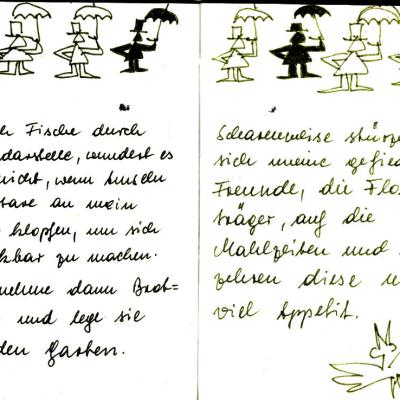 Fische durch
darstelle, wundert es
nicht, wenn Amseln
Stare an mein
klopfen, um sich
bar zu machen.
nehme dann Brot=
und lege sie
den Garten.
Scharenweise stürze
sich meine gefied
Freunde, die Flo
träger, auf die
Mahlzeiten und
zehren diese
viel Appetit.